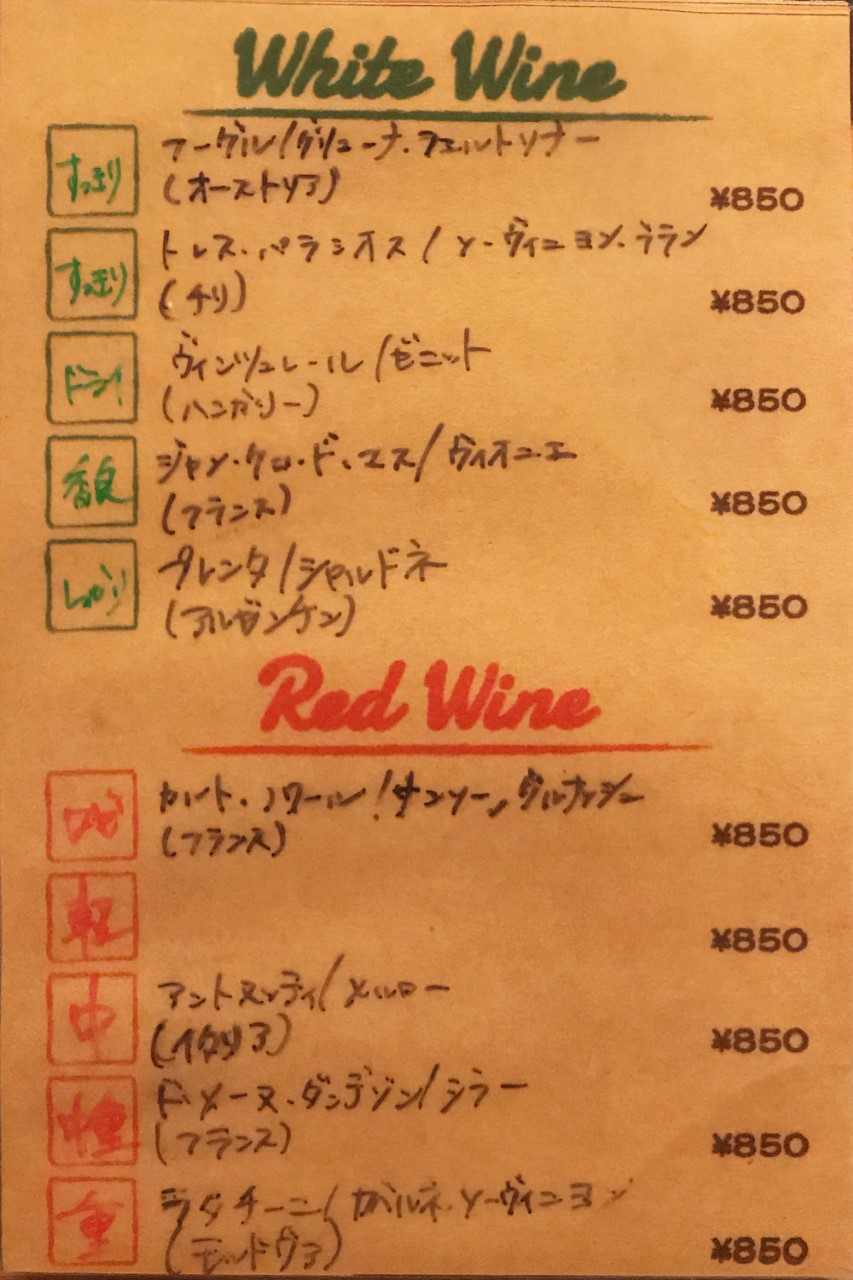 White Wine
すっきり
フーゲル/グリューナ・フェルトリナー
(オーストリア)
¥850
すっきり
トレス・パラシオス/ソーヴィニヨン・ブラン
(チリ)
¥850
ドライ
ヴィンツェレール/ゼニット
(ハンガリー)
¥850
香良
ジャン・クロード・マス/ヴィオニエ
(フランス)
¥850
しっかり
プレンタ/シャルドネ
(アルゼンチン)
¥850
Red Wine
カルト・ノワール/サンソー、グルナッシュ
(フランス)
¥850
軽
¥850
中
アントヌッティ/メルロー
(イタリア)
¥850
中重
ドメーヌ・ダンデゾン/シラー
(フランス)
¥850
重
ラダチーニ/カベルネ・ソーヴィニヨン
(モルドヴァ)
¥850